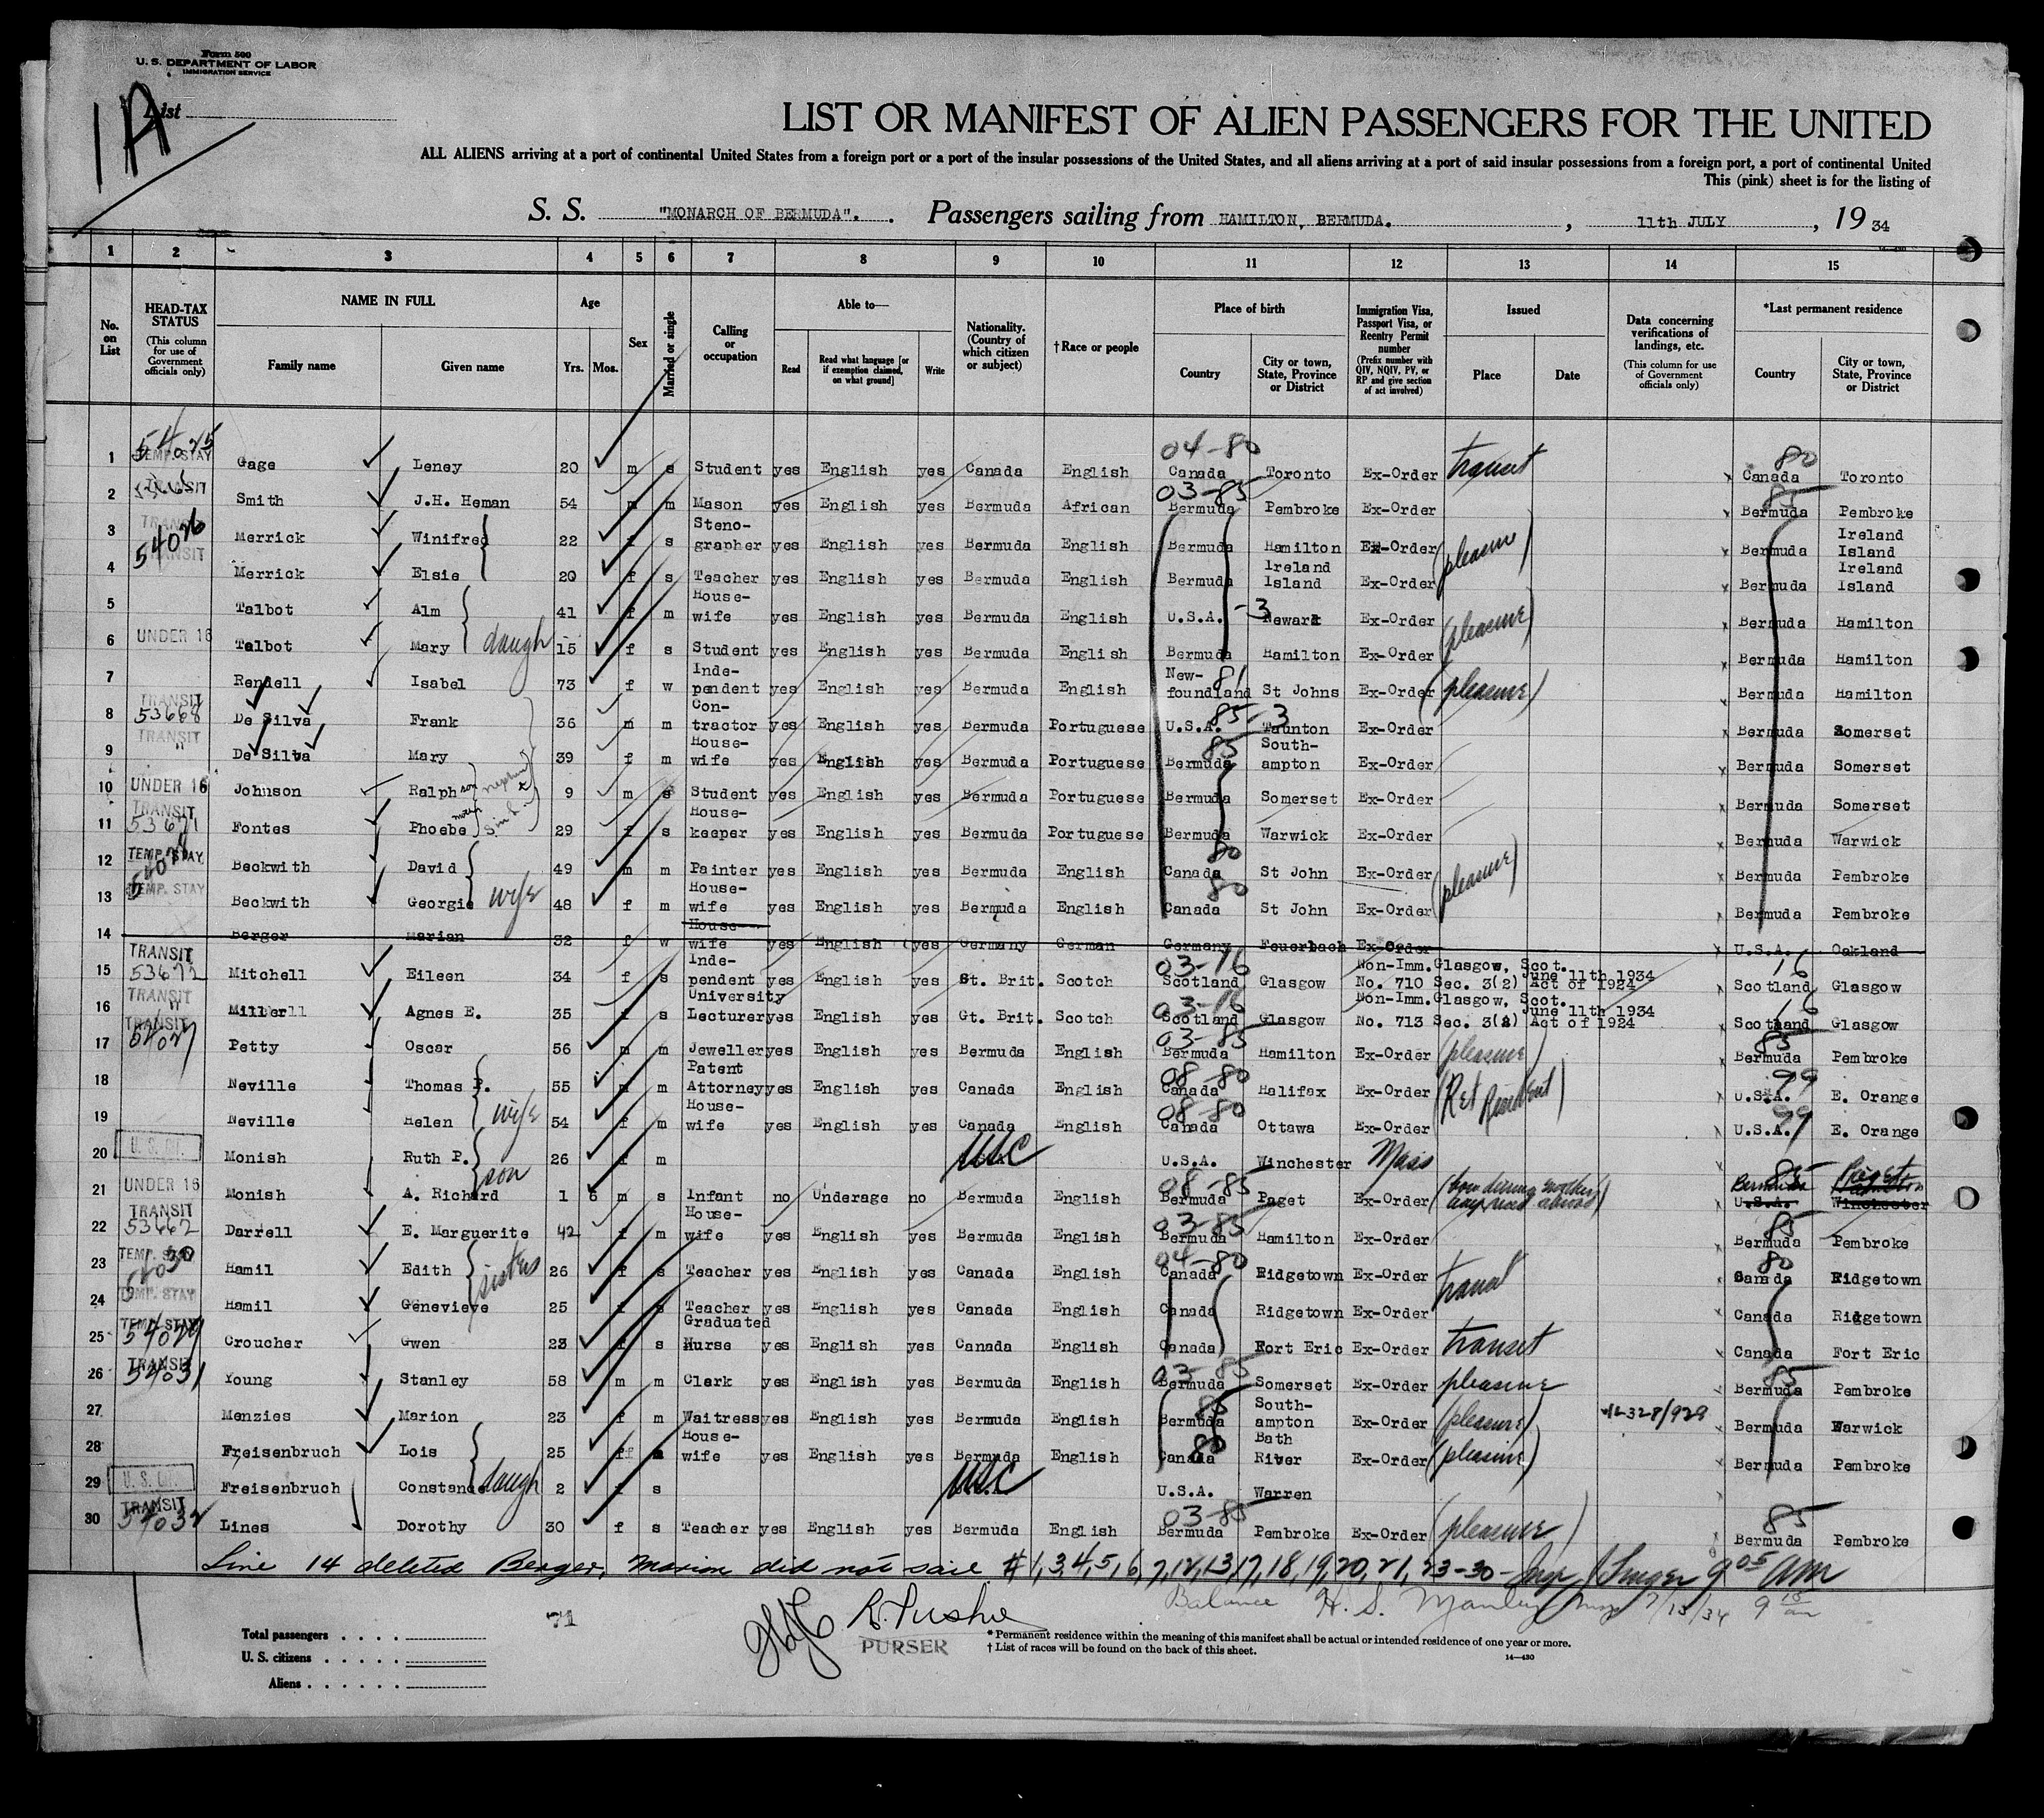 Form 500
U. S. DEPARTMENT OF LABOR
IMMIGRATION SERVICE
1A
List
LIST OR MANIFEST OF ALIEN PASSENGERS FOR THE UNITED
ALL ALIENS arriving at a port of continental United States from a foreign port or a port of the insular possessions of the United States, and all aliens arriving at a port of said insular possessions from a foreign port, a port of continental United
This (pink) sheet is for the listing of
S. S. "MONARCH OF BERMUDA". Passengers sailing from HAMILTON, BERMUDA. , 11th JULY , 19 34
1 2 3 4 5 6 7 8 9 10 11 12 13 14 15
No. on List
HEAD-TAX STATUS (This column for use of Government officials only)
NAME IN FULL Family name Given name
Age Yrs. Mos.
Sex
Married or single
Calling or occupation
Able to— Read Read what language [or if exemption claimed, on what ground] Write
Nationality. (Country of which citizen or subject)
†Race or people
Place of birth Country City or town, State, Province or District
Immigration Visa, Passport Visa, or Reentry Permit number (Prefix number with QIV, NQIV, PV, or RP and give section of act involved)
Issued Place Date
Data concerning verifications of landings, etc. (This column for use of Government officials only)
*Last permanent residence Country City or town, State, Province or District
1 54025 TEMP. STAY Gage Leney 20 m s Student yes English yes Canada English 04-80 Canada Toronto Ex-Order transit 80 Canada Toronto
2 TRANSIT Smith J.H. Heman 54 m m Mason yes English yes Bermuda African 03-85 Bermuda Pembroke Ex-Order 85 Bermuda Pembroke
3 TRANSIT 54026 Merrick Winifred 22 f s Steno-grapher yes English yes Bermuda English Bermuda Hamilton Ex-Order (pleasure) Bermuda Ireland Island
4 TRANSIT Merrick Elsie 20 f s Teacher yes English yes Bermuda English Bermuda Ireland Island Ex-Order Bermuda Ireland Island
5 Talbot Alm 41 f m House-wife yes English yes Bermuda English U.S.A. -3 Newark Ex-Order (pleasure) Bermuda Hamilton
6 UNDER 16 Talbot Mary daugh 15 f s Student yes English yes Bermuda English Bermuda Hamilton Ex-Order Bermuda Hamilton
7 Rendell Isabel 73 f w Inde-pendent yes English yes Bermuda English New-foundland 81 St Johns Ex-Order (pleasure) Bermuda Hamilton
8 TRANSIT 53668 De Silva Frank 36 m m Con-tractor yes English yes Bermuda Portuguese U.S.A. 85-3 Taunton Ex-Order Bermuda Somerset
9 TRANSIT " De Silva Mary 39 f m House-wife yes English yes Bermuda Portuguese 85 Bermuda South-ampton Ex-Order Bermuda Somerset
10 UNDER 16 Johnson Ralph son nephew 9 m s Student yes English yes Bermuda Portuguese Bermuda Somerset Ex-Order Bermuda Somerset
11 TRANSIT 53671 Fontes Phoebe 29 f s House-keeper yes English yes Bermuda Portuguese Bermuda Warwick Ex-Order Bermuda Warwick
12 TEMP. STAY Beckwith David 49 m m Painter yes English yes Bermuda English 80 Canada St John Ex-Order (pleasure) Bermuda Pembroke
13 TEMP. STAY Beckwith Georgie wife 48 f m House-wife yes English yes Bermuda English 80 Canada St John Ex-Order Bermuda Pembroke
14 Berger Marian 52 f w House-wife yes English yes Germany German Germany Feuerbach Ex-Order U.S.A. Oakland
15 TRANSIT 53672 Mitchell Eileen 34 f s Inde-pendent yes English yes St. Brit. Scotch 03-76 Scotland Glasgow Non-Imm. Glasgow, Scot. June 11th 1934 No. 710 Sec. 3(2) Act of 1924 16 Scotland Glasgow
16 TRANSIT " Agnes E. 35 f s University Lecturer yes English yes Gt. Brit. Scotch 03-76 Scotland Glasgow Non-Imm. Glasgow, Scot. June 11th 1934 No. 713 Sec. 3(2) Act of 1924 16 Scotland Glasgow
17 TRANSIT 54027 Petty Oscar 56 m m Jeweller yes English yes Bermuda English 03-85 Bermuda Hamilton Ex-Order (pleasure) 85 Bermuda Pembroke
18 Neville Thomas P. 55 m m Patent Attorney yes English yes Canada English 08-80 Canada Halifax Ex-Order (Ret Resident) 99 U.S.A. E. Orange
19 Neville Helen wife 54 f m House-wife yes English yes Canada English 08-80 Canada Ottawa Ex-Order 99 U.S.A. E. Orange
20 U. S. CIT. Monish Ruth P. 26 f m USC U.S.A. Winchester Mass
21 UNDER 16 Monish A. Richard son 1 6 m s Infant no Underage no Bermuda English 08-85 Bermuda Paget Ex-Order (born during mother's temp visit abroad) 85 Bermuda Paget U.S.A. Winchester
22 TRANSIT 53662 Darrell E. Marguerite 42 f m House-wife yes English yes Bermuda English 03-85 Bermuda Hamilton Ex-Order 85 Bermuda Pembroke
23 TEMP. STAY 54030 Hamil Edith sisters 26 f s Teacher yes English yes Canada English 04-80 Canada Ridgetown Ex-Order transit 80 Canada Ridgetown
24 TEMP. STAY Hamil Genevieve 25 f s Teacher yes English yes Canada English Canada Ridgetown Ex-Order Canada Ridgetown
25 TEMP. STAY 54029 Croucher Gwen 23 f s Graduated Nurse yes English yes Canada English Canada Fort Eric Ex-Order transit Canada Fort Eric
26 TRANSIT 54031 Young Stanley 58 m m Clerk yes English yes Bermuda English 03-85 Bermuda Somerset Ex-Order pleasure 85 Bermuda Pembroke
27 Menzies Marion 23 f m Waitress yes English yes Bermuda English 85 Bermuda South-ampton Ex-Order (pleasure) 328/929 Bermuda Warwick
28 Freisenbruch Lois 25 f House-wife yes English yes Bermuda English 80 Canada Bath River Ex-Order (pleasure) Bermuda Pembroke
29 U. S. CIT. Freisenbruch Constance daugh 2 f s USC U.S.A. Warren
30 TRANSIT 54032 Lines Dorothy 30 f s Teacher yes English yes Bermuda English 03-85 Bermuda Pembroke Ex-Order (pleasure) 85 Bermuda Pembroke
Line 14 deleted Berger, Marion did not sail #1,3,4,5,6,7,12,13,17,18,19,20,21,23-30 - Insp Singer 9 05 AM
Balance H. S. Manley Insp 7/13/34 9 15 am
71
Total passengers
U. S. citizens
Aliens
PURSER
* Permanent residence within the meaning of this manifest shall be actual or intended residence of one year or more.
† List of races will be found on the back of this sheet.
14—430